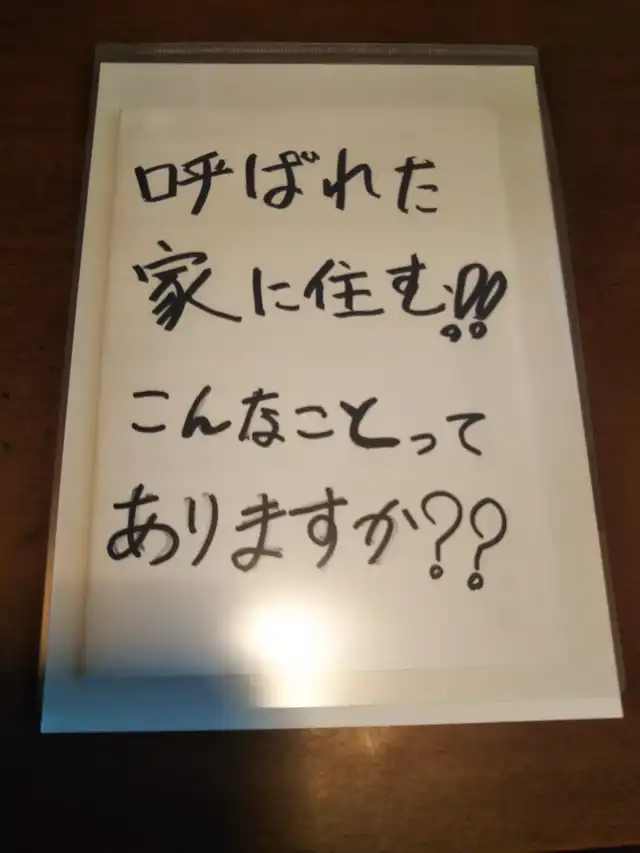 呼ばれた
家に住む!!
こんなことって
ありますか??